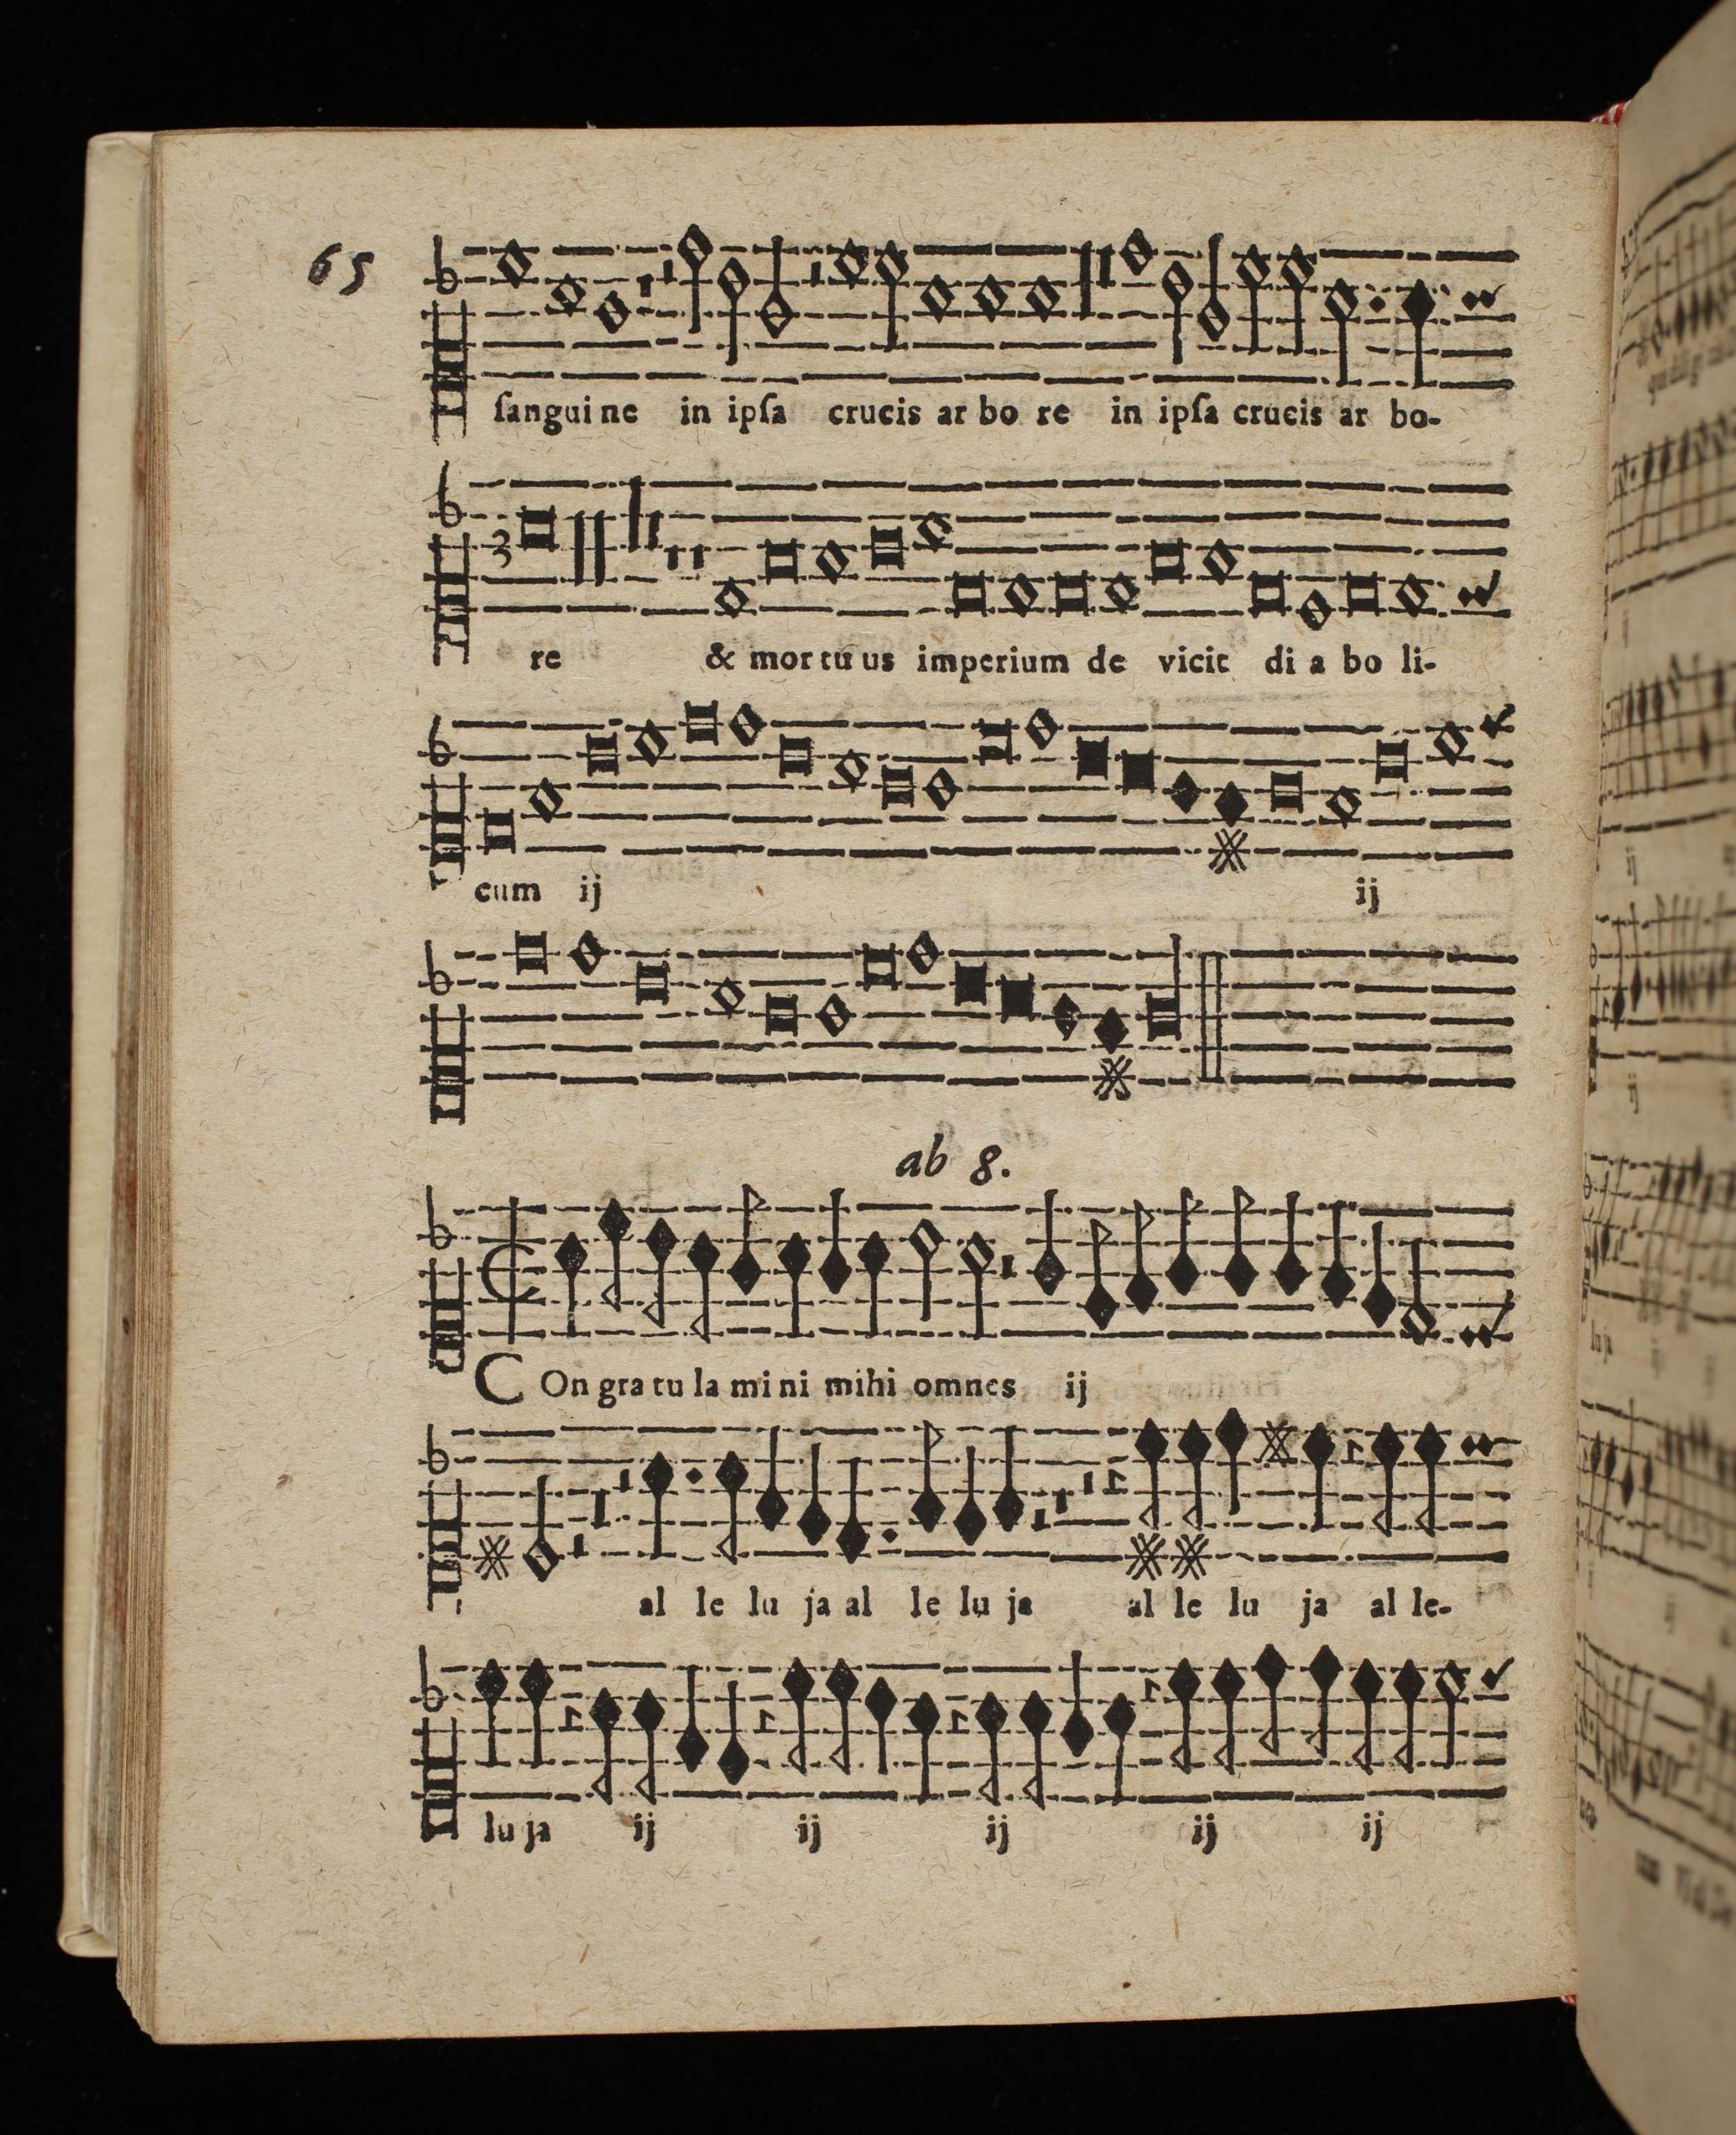 65
ſanguine in ipſa crucis ar bo re in ipſa crucis ar bo-
3
re & mor tu us imperium de vicit di a bo li-
cum ij ij
ab 8.
COn gra tu la mi ni mihi omnes ij
al le lu ja al le lu ja al le lu ja al le-
lu ja ij ij ij ij ij